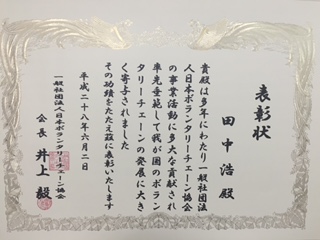 表彰状
田中浩殿
貴殿は多年にわたり一般社団法
人日本ボランタリーチェーン協会
の事業活動に多大な貢献され
率先垂範して我が国のボラン
タリーチェーンの発展に大き
く寄与されました
その功績をたたえ茲に表彰いたします
平成二十八年六月二日
一般社団法人日本ボランタリーチェーン協会
会長 井上毅